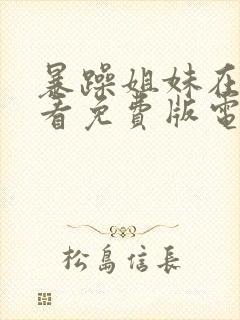 暴躁姐妹在
看免費版電
松島信長